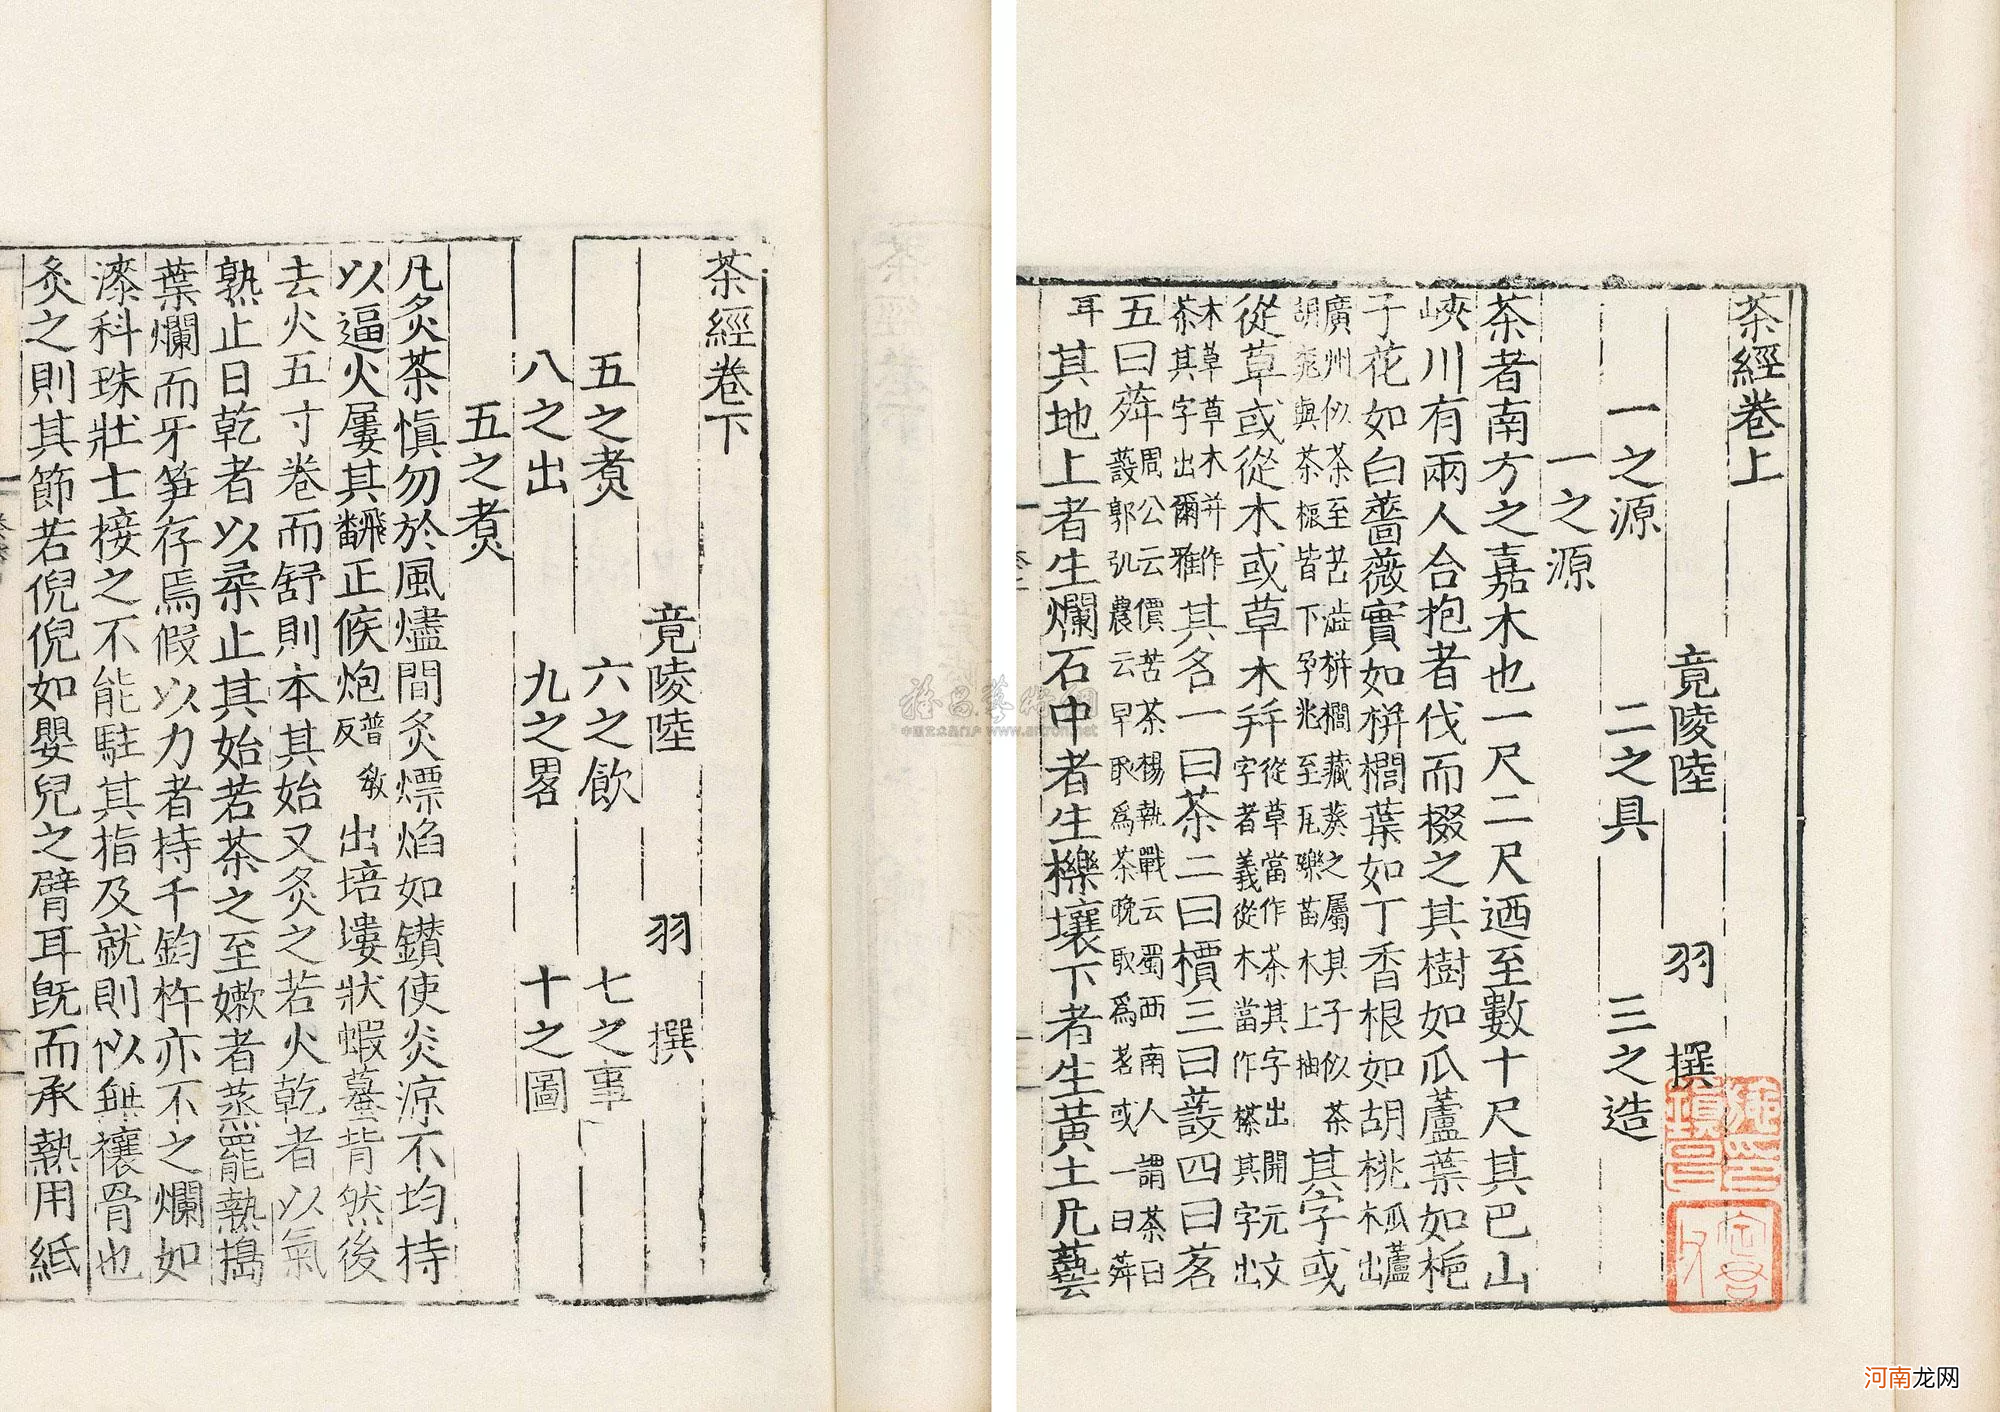 茶經卷上
竟陵陸 羽 撰
一之源 二之具 三之造
一之源
茶者南方之嘉木也一尺二尺迺至數十尺其巴山
峽川有兩人合抱者伐而掇之其樹如瓜蘆葉如梔
子花如白薔薇實如栟櫚葉如丁香根如胡桃瓜蘆木出
廣州似茶至苦澁栟櫚蒲葵之屬其子似茶
胡桃與茶根皆下孕兆至瓦礫苗木上抽其字或
從草或從木或草木并從草當作茶其字出開元文
字者義從木當作搽其字出
本草草木并作
茶其字出爾雅其名一曰茶二曰檟三曰蔎四曰茗
五曰荈周公云檟苦茶楊執戟云蜀西南人謂茶曰
蔎郭弘農云早取爲茶晚取爲茗或一曰荈
耳其地上者生爛石中者生櫟壤下者生黃土凡藝
茶經卷下
竟陵陸 羽 撰
五之煑 六之飲 七之事
八之出 九之畧 十之圖
五之煑
凡炙茶慎勿於風燼間炙熛焰如鑽使炎凉不均持
以逼火屢其飜正候炮普教反出培塿狀蝦蟇背然後
去火五寸卷而舒則本其始又炙之若火乾者以氣
熟止日乾者以柔止其始若茶之至嫩者蒸罷熱搗
葉爛而牙笋存焉假以力者持千鈞杵亦不之爛如
漆科珠壯士接之不能駐其指及就則似無禳骨也
炙之則其節若倪倪如嬰兒之臂耳旣而承熱用紙
中国艺术品门户 www.artron.net
河南龙网